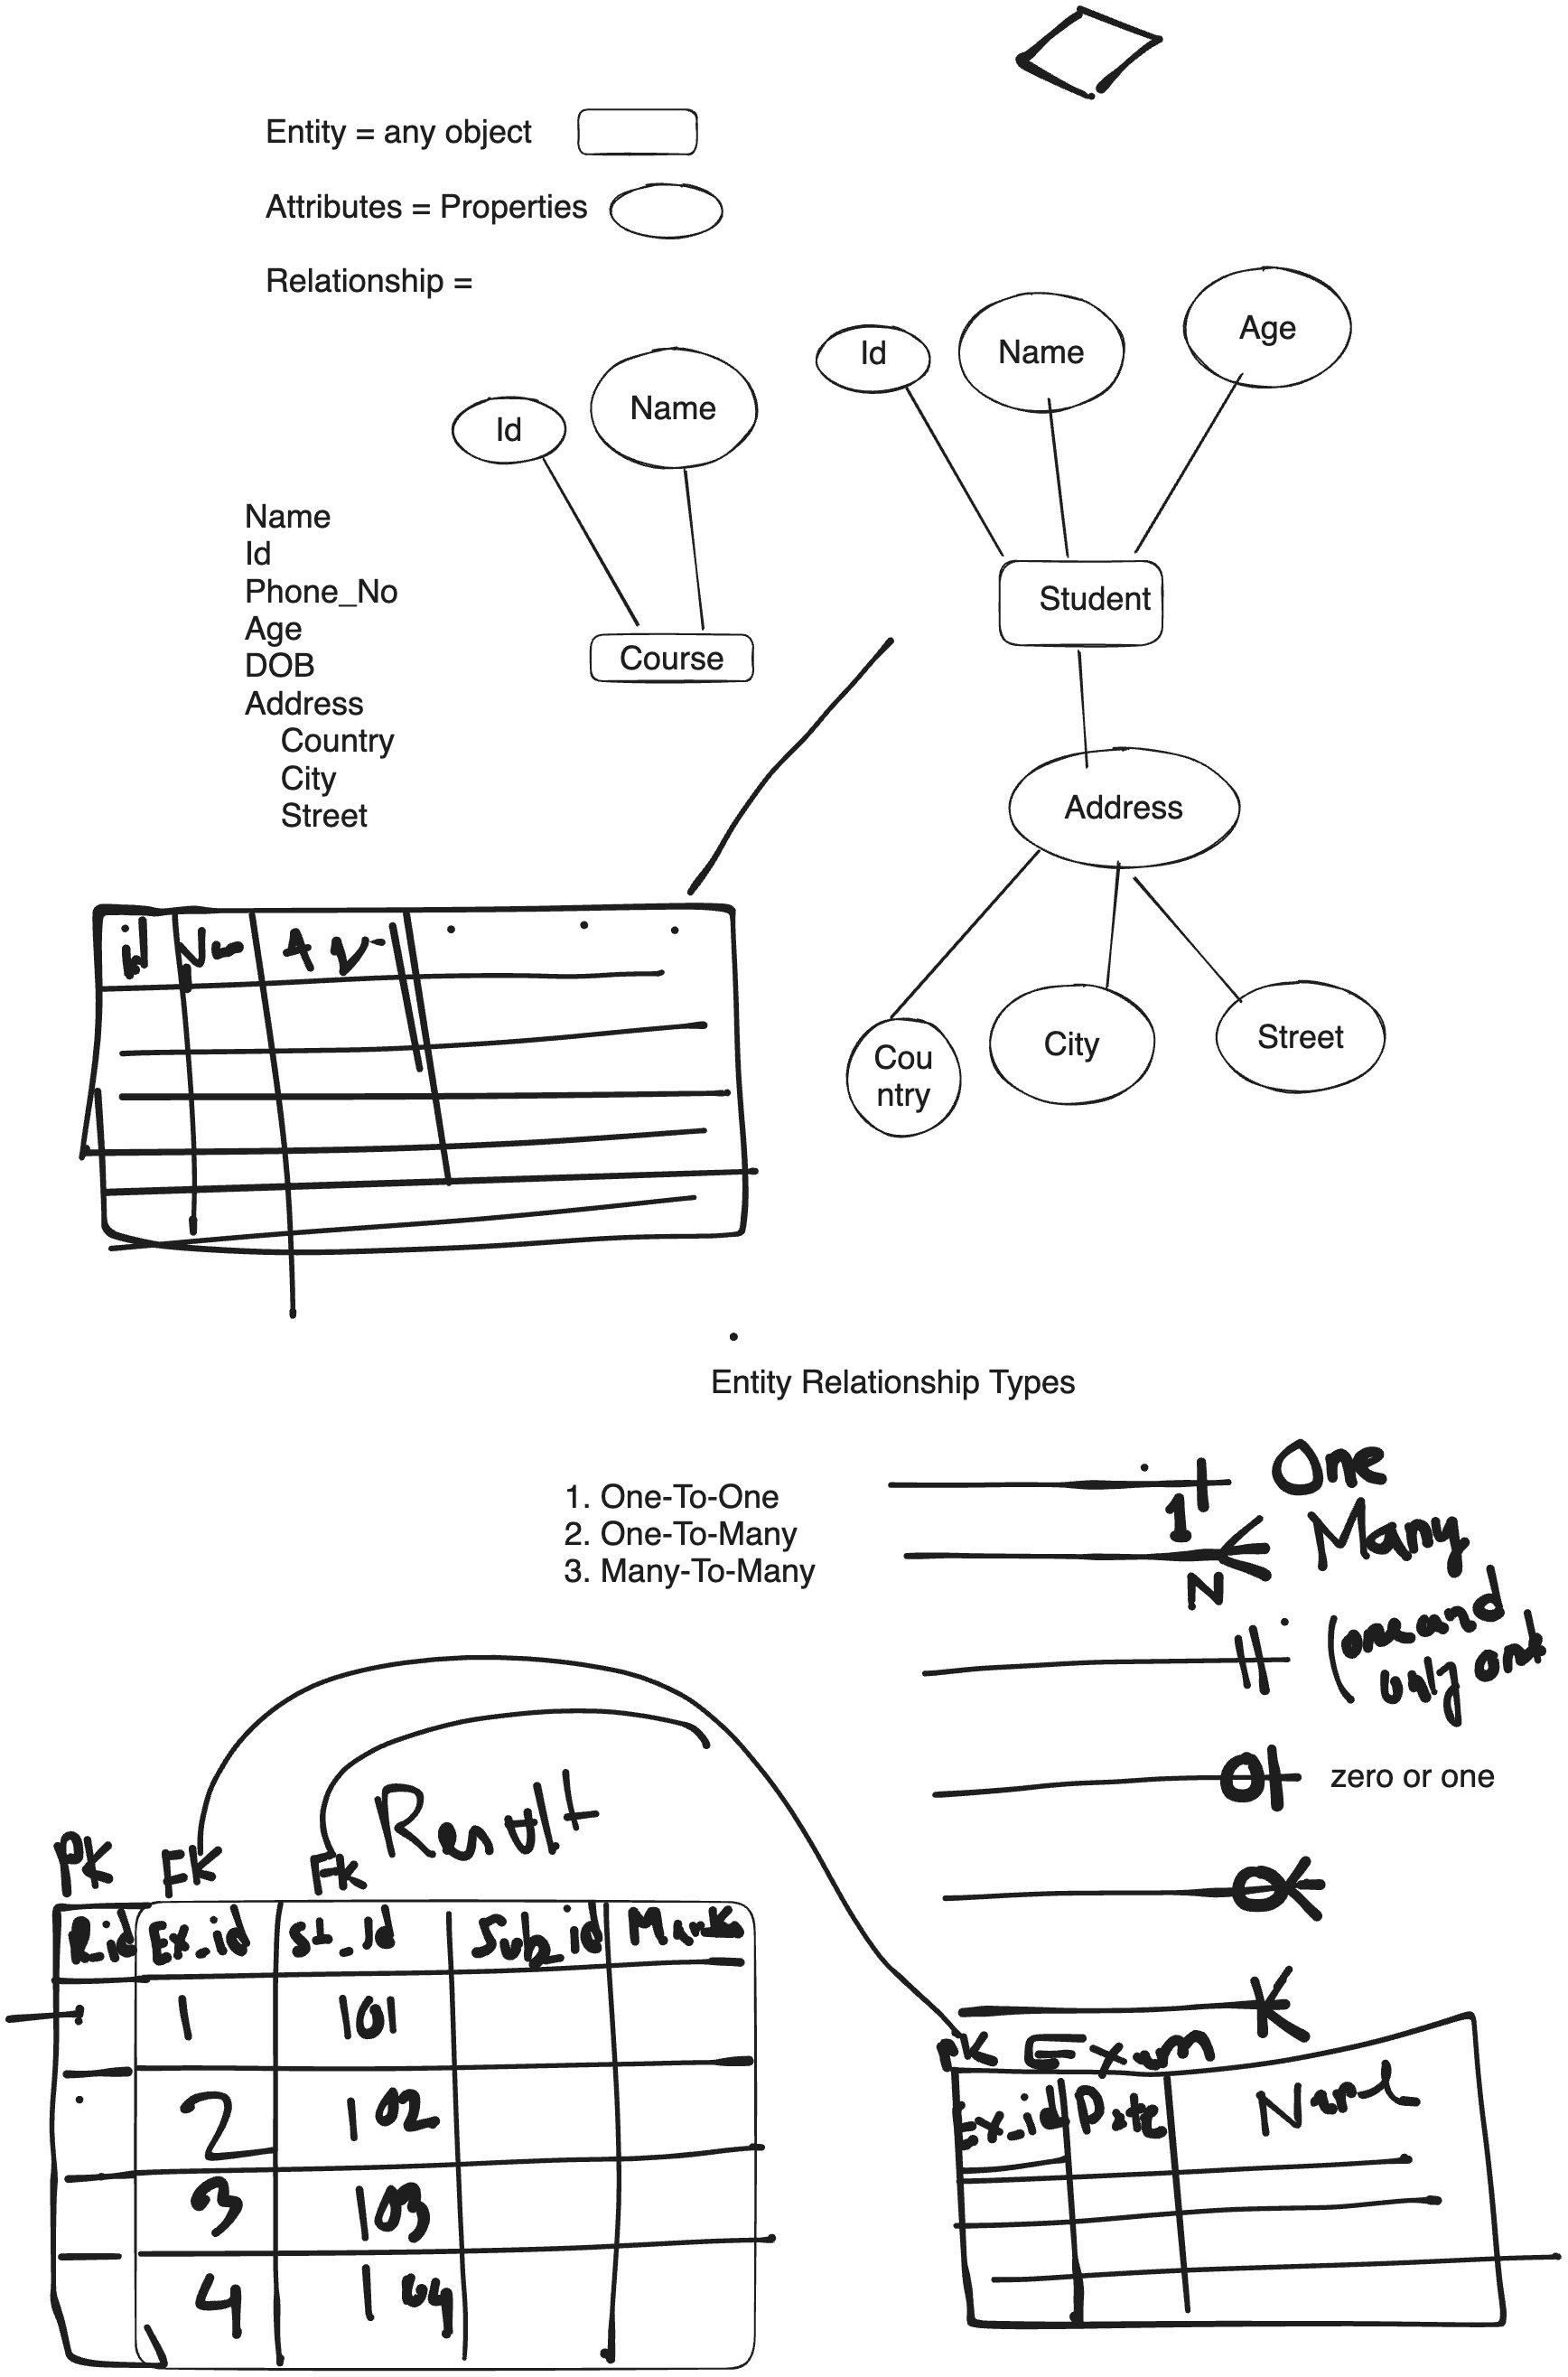 Entity = any object
Attributes = Properties
Relationship =
Id
Name
Age
Id
Name
Name
Id
Phone_No
Age
DOB
Address
Country
City
Street
Course
Student
Address
Cou
ntry
City
Street
id
Entity Relationship Types
1. One-To-One
2. One-To-Many
3. Many-To-Many
One
1
Many
N
(one and
only one
zero or one
Result
PK FK FK
Rid Ex_id St_Id Sub_id Marks
1 101
2 102
3 103
4 104
PK Exam
Ex_id Date Name